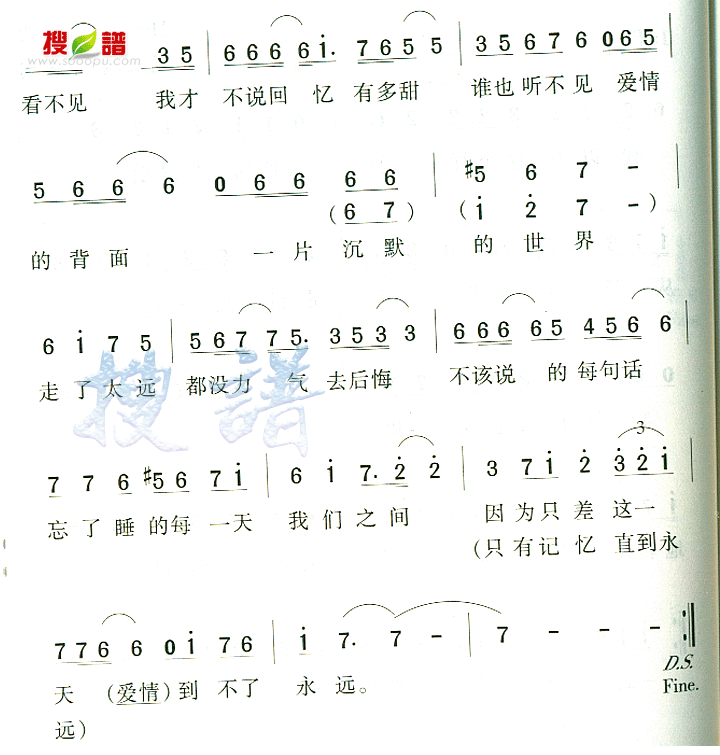 搜譜
www.sooopu.com
35 | 6666i. 7655 | 35676 065 |
看不见 我才 不说回忆 有多甜 谁也听不见 爱情
5666 066 66 | #567- |
(67) (i27-)
的背面 一片沉默 的世界
6i75 | 5677 75. 3533 | 66665 4566 |
走了太远 都没力气去后悔 不该说的每句话
搜譜
3
776 #56 7i | 6i7.22 | 37i2 32i |
忘了睡的每一天 我们之间 因为只差这一
(只有记忆直到永
7766 0i 76 | i7.7- | 7--- :||
天(爱情)到不了永远。
D.S.
远)
Fine.